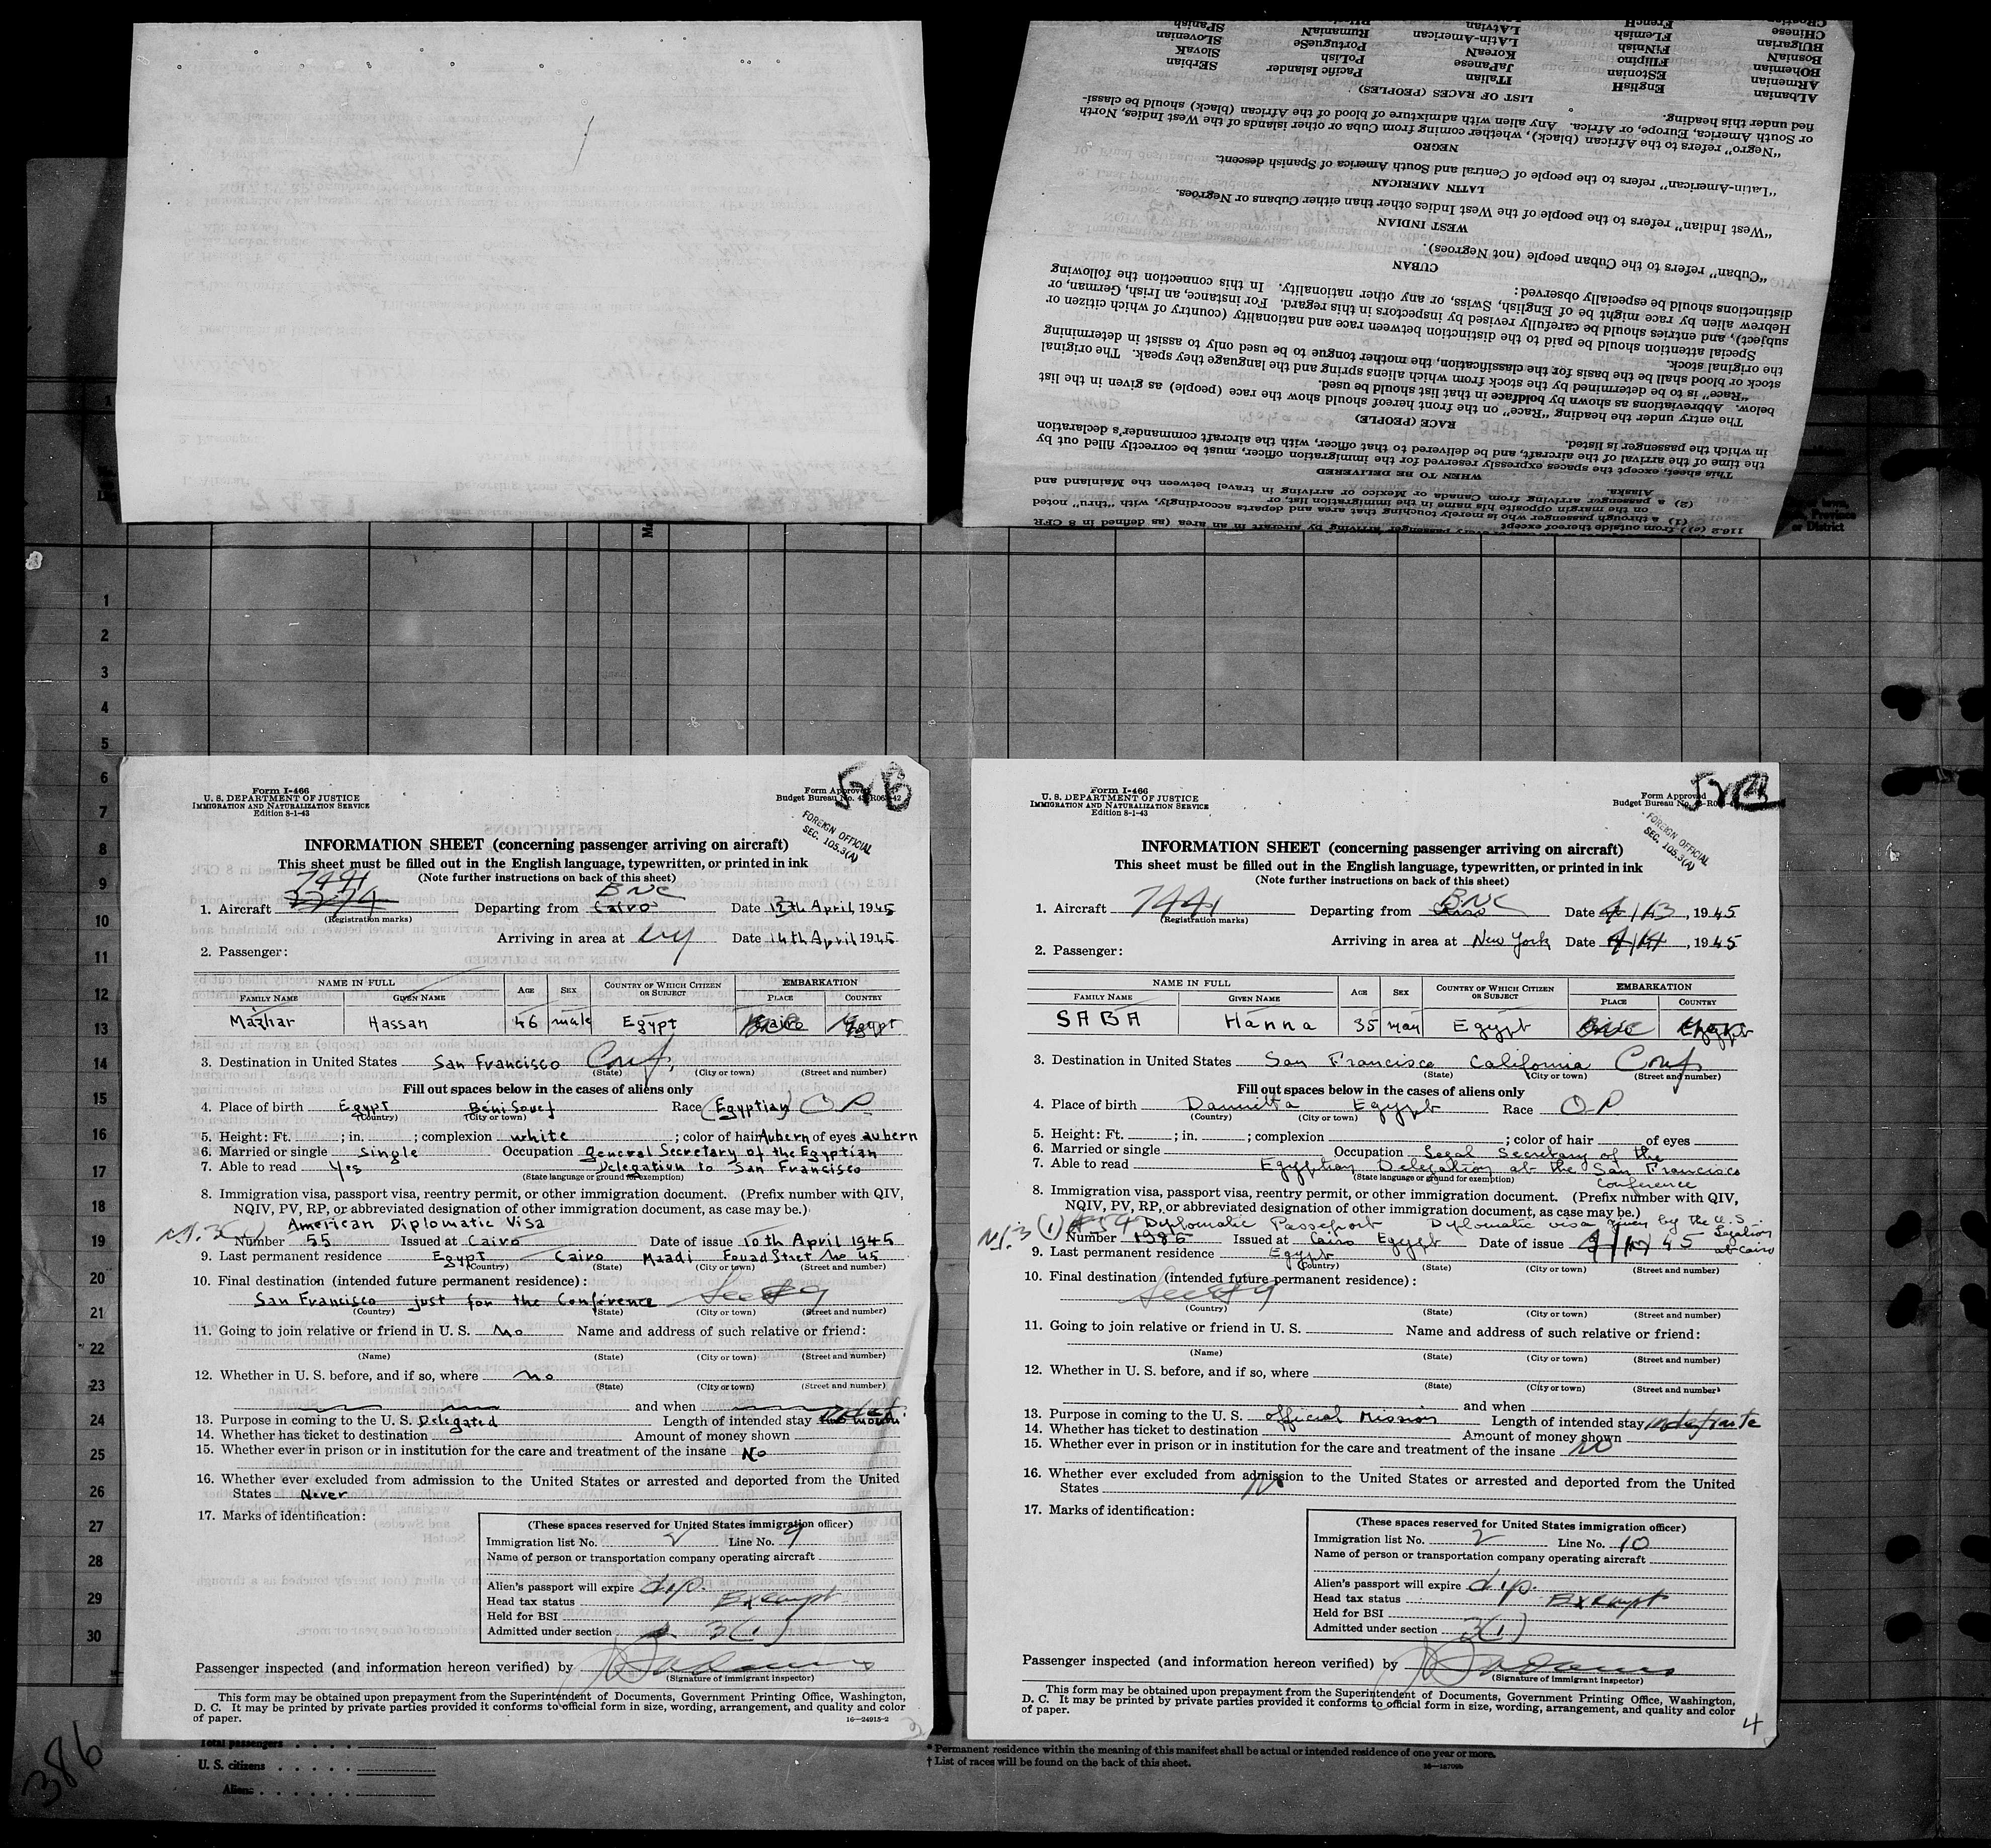 ALbanian
ARmenian
BOhemian
BOsniaN
BUlgarian
CHinese
CRoatian
EnglisH
EStonian
FIlipino
FiNnish
FLemish
FrencH
ITalian
JaPanese
KoreaN
LAtin-American
LATvian
Pacific Islander
PoLish
PortugueSe
RumaniaN
SErbian
SlovaK
SLovenian
SPanish
LIST OF RACES (PEOPLES)
fied under this heading.
or South America, Europe, or Africa. Any alien with admixture of blood of the African (black) should be classi-
"Negro" refers to the African (black), whether coming from Cuba or other islands of the West Indies, North
NEGRO
"Latin-American" refers to the people of Central and South America of Spanish descent.
LATIN AMERICAN
"West Indian" refers to the people of the West Indies other than either Cubans or Negroes.
WEST INDIAN
"Cuban" refers to the Cuban people (not Negroes).
CUBAN
distinctions should be especially observed:
Hebrew alien by race might be of English, Swiss, or any other nationality. In this connection the following
subject), and entries should be carefully revised by inspectors in this regard. For instance, an Irish, German, or
Special attention should be paid to the distinction between race and nationality (country of which citizen or
the original stock.
stock or blood shall be the basis for the classification, the mother tongue to be used only to assist in determining
"Race" is to be determined by the stock from which aliens spring and the language they speak. The original
below. Abbreviations as shown by boldface in that list should be used.
The entry under the heading "Race" on the front hereof should show the race (people) as given in the list
RACE (PEOPLE)
in which the passenger is listed.
the time of the arrival of the aircraft, and be delivered to that officer, with the aircraft commander's declaration
This sheet, except the spaces expressly reserved for the immigration officer, must be correctly filled out by
WHEN TO BE DELIVERED
Alaska.
(2) a passenger arriving from Canada or Mexico or arriving in travel between the Mainland and
on the margin opposite his name in the immigration list, or
(1) a through passenger who is merely touching that area and departs accordingly, with "thru" noted
116.2 (c)) from outside thereof except
town,
Province
or District
1
2
3
4
5
6
7
8
9
10
11
12
13
14
15
16
17
18
19
20
21
22
23
24
25
26
27
28
29
30
Form I-466
U. S. DEPARTMENT OF JUSTICE
IMMIGRATION AND NATURALIZATION SERVICE
Edition 8-1-43
Form Approved
Budget Bureau No. 43-R063-42
FOREIGN OFFICIAL
SEC. 105.3(A)
INFORMATION SHEET (concerning passenger arriving on aircraft)
This sheet must be filled out in the English language, typewritten, or printed in ink
(Note further instructions on back of this sheet)
7441 BNC
1. Aircraft Departing from Cairo Date 13th April, 1945
(Registration marks)
Arriving in area at NY Date 14th April, 1945
2. Passenger:
NAME IN FULL AGE SEX COUNTRY OF WHICH CITIZEN OR SUBJECT EMBARKATION
FAMILY NAME GIVEN NAME PLACE COUNTRY
Mazhar Hassan 46 male Egypt Cairo Egypt
3. Destination in United States San Francisco Conf.
(State) (City or town) (Street and number)
Fill out spaces below in the cases of aliens only
4. Place of birth Egypt Béni Souef Race (Egyptian) OP
(Country) (City or town)
5. Height: Ft. ; in. ; complexion white ; color of hair Aubern of eyes aubern
6. Married or single Single Occupation general Secretary of the Egyptian
7. Able to read Yes Delegation to San Francisco
(State language or ground for exemption)
8. Immigration visa, passport visa, reentry permit, or other immigration document. (Prefix number with QIV,
NQIV, PV, RP, or abbreviated designation of other immigration document, as case may be.)
American Diplomatic Visa
Number 55 Issued at Cairo Date of issue 10th April 1945
9. Last permanent residence Egypt Cairo Maadi Fouad Stret No 45
(Country) (State) (City or town) (Street and number)
10. Final destination (intended future permanent residence):
San Francisco just for the Conférence See #9
(Country) (State) (City or town) (Street and number)
11. Going to join relative or friend in U. S. No Name and address of such relative or friend:
(Name) (State) (City or town) (Street and number)
12. Whether in U. S. before, and if so, where no
(State) (City or town) (Street and number)
and when
13. Purpose in coming to the U. S. Delegated Length of intended stay indef.
14. Whether has ticket to destination Amount of money shown
15. Whether ever in prison or in institution for the care and treatment of the insane No
16. Whether ever excluded from admission to the United States or arrested and deported from the United
States Never
17. Marks of identification:
(These spaces reserved for United States immigration officer)
Immigration list No. 2 Line No. 9
Name of person or transportation company operating aircraft
Alien's passport will expire dip.
Head tax status Exempt
Held for BSI
Admitted under section 3(1)
Passenger inspected (and information hereon verified) by
(Signature of immigrant inspector)
This form may be obtained upon prepayment from the Superintendent of Documents, Government Printing Office, Washington,
D. C. It may be printed by private parties provided it conforms to official form in size, wording, arrangement, and quality and color
of paper.
16—24915-2
3
Form I-466
U. S. DEPARTMENT OF JUSTICE
IMMIGRATION AND NATURALIZATION SERVICE
Edition 8-1-43
Form Approved
Budget Bureau No.
FOREIGN OFFICIAL
SEC. 105.3(A)
INFORMATION SHEET (concerning passenger arriving on aircraft)
This sheet must be filled out in the English language, typewritten, or printed in ink
(Note further instructions on back of this sheet)
BNC
1. Aircraft 7441 Departing from Cairo Date 4/13, 1945
(Registration marks)
Arriving in area at New York Date 4/14, 1945
2. Passenger:
NAME IN FULL AGE SEX COUNTRY OF WHICH CITIZEN OR SUBJECT EMBARKATION
FAMILY NAME GIVEN NAME PLACE COUNTRY
SABA Hanna 35 man Egypt BNC Egypt
3. Destination in United States San Francisco California Conf
(State) (City or town) (Street and number)
Fill out spaces below in the cases of aliens only
4. Place of birth Damietta Egypt Race OP
(Country) (City or town)
5. Height: Ft. ; in. ; complexion ; color of hair of eyes
6. Married or single Occupation Legal Secretary of the
7. Able to read Egyptian Delegation at the San Francisco
(State language or ground for exemption) Conference
8. Immigration visa, passport visa, reentry permit, or other immigration document. (Prefix number with QIV,
NQIV, PV, RP, or abbreviated designation of other immigration document, as case may be.)
Diplomatic Passeport Diplomatic visa given by the U.S. Legation at Cairo
Number 1386 Issued at Cairo Egypt Date of issue 45
9. Last permanent residence Egypt
(Country) (State) (City or town) (Street and number)
10. Final destination (intended future permanent residence):
See #9
(Country) (State) (City or town) (Street and number)
11. Going to join relative or friend in U. S. Name and address of such relative or friend:
(Name) (State) (City or town) (Street and number)
12. Whether in U. S. before, and if so, where
(State) (City or town) (Street and number)
and when
13. Purpose in coming to the U. S. official Mission Length of intended stay indefinite
14. Whether has ticket to destination Amount of money shown
15. Whether ever in prison or in institution for the care and treatment of the insane no
16. Whether ever excluded from admission to the United States or arrested and deported from the United
States No
17. Marks of identification:
(These spaces reserved for United States immigration officer)
Immigration list No. 2 Line No. 10
Name of person or transportation company operating aircraft
Alien's passport will expire dip.
Head tax status Exempt
Held for BSI
Admitted under section 3(1)
Passenger inspected (and information hereon verified) by
(Signature of immigrant inspector)
This form may be obtained upon prepayment from the Superintendent of Documents, Government Printing Office, Washington,
D. C. It may be printed by private parties provided it conforms to official form in size, wording, arrangement, and quality and color
of paper.
4
386
Total passengers
U. S. citizens
Aliens
* Permanent residence within the meaning of this manifest shall be actual or intended residence of one year or more.
† List of races will be found on the back of this sheet.